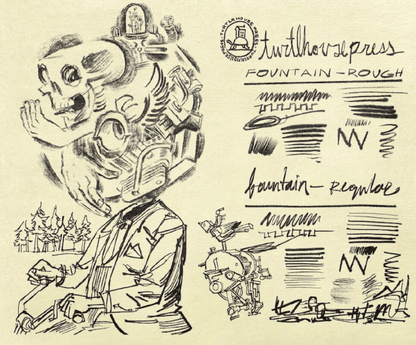 turtlhousepress
FOUNTAIN-ROUGH
fountain-Regular